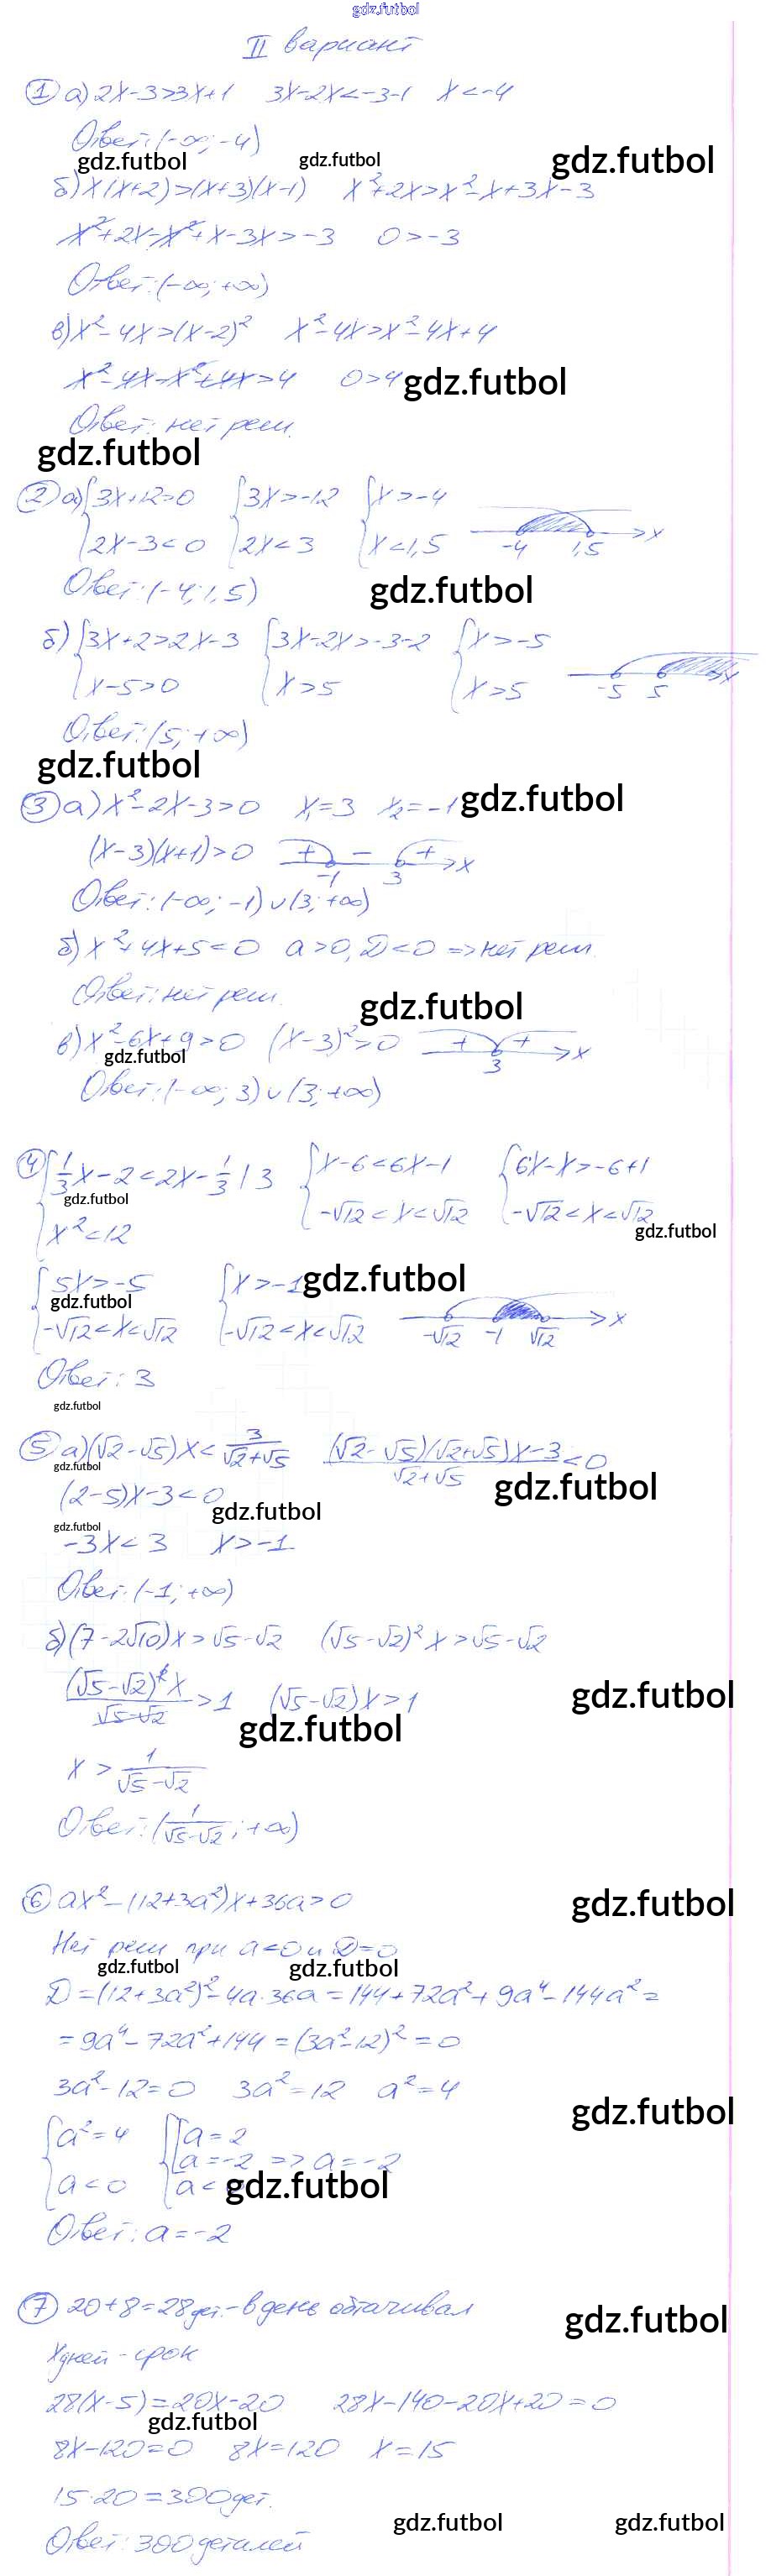 gdz.futbol
II вариант
① а) 2x-3>3x+1 3x-2x<-3-1 x<-4
Ответ: (-∞; -4)
gdz.futbol gdz.futbol gdz.futbol
б) x(x+2)>(x+3)(x-1) x²+2x>x²-x+3x-3
x²+2x-x²+x-3x>-3 0>-3
Ответ: (-∞; +∞)
в) x²-4x>(x-2)² x²-4x>x²-4x+4
x²-4x-x²+4x>4 0>4 gdz.futbol
Ответ: нет реш.
gdz.futbol
② а) {3x+12>0 {3x>-12 {x>-4
{2x-3<0 {2x<3 {x<1,5 -4 1,5 x
Ответ: (-4; 1,5) gdz.futbol
б) {3x+2>2x-3 {3x-2x>-3-2 {x>-5
{x-5>0 {x>5 {x>5 -5 5 x
Ответ: (5; +∞)
gdz.futbol
③ а) x²-2x-3>0 x₁=3 x₂=-1 gdz.futbol
(x-3)(x+1)>0 + - + -1 3 x
Ответ: (-∞; -1)∪(3; +∞)
б) x²+4x+5<0 a>0, D<0 => нет реш.
Ответ: нет реш. gdz.futbol
в) x²-6x+9>0 (x-3)²>0 + + 3 x
gdz.futbol
Ответ: (-∞; 3)∪(3; +∞)
④ {1/3x-2<2x-1/3 | 3 {x-6<6x-1 {6x-x>-6+1
gdz.futbol
{x²<12 {-√12<x<√12 {-√12<x<√12
gdz.futbol
{5x>-5 {x>-1 gdz.futbol
gdz.futbol
{-√12<x<√12 {-√12<x<√12 -√12 -1 √12 x
Ответ: 3
gdz.futbol
⑤ а) (√2-√5)x<3/(√2+√5) ((√2-√5)(√2+√5)x-3)/(√2+√5)<0
gdz.futbol gdz.futbol
(2-5)x-3<0
gdz.futbol
gdz.futbol
-3x<3 x>-1
Ответ: (-1; +∞)
б) (7-2√10)x>√5-√2 (√5-√2)²x>√5-√2
(√5-√2)²x/(√5-√2)>1 (√5-√2)x>1 gdz.futbol
gdz.futbol
x>1/(√5-√2)
Ответ: (1/(√5-√2); +∞)
⑥ ax²-(12+3a²)x+36a>0 gdz.futbol
Нет реш при a<0 и D=0
gdz.futbol gdz.futbol
D=(12+3a²)²-4a·36a=144+72a²+9a⁴-144a²=
=9a⁴-72a²+144=(3a²-12)²=0
3a²-12=0 3a²=12 a²=4
gdz.futbol
{a²=4 {[a=2
[a=-2 => a=-2
{a<0 {a< gdz.futbol
Ответ: a=-2
⑦ 20+8=28 дет. - в день обтачивал
gdz.futbol
x дней - срок
28(x-5)=20x-20 28x-140-20x+20=0
gdz.futbol
8x-120=0 8x=120 x=15
15·20=300 дет.
gdz.futbol gdz.futbol
Ответ: 300 деталей